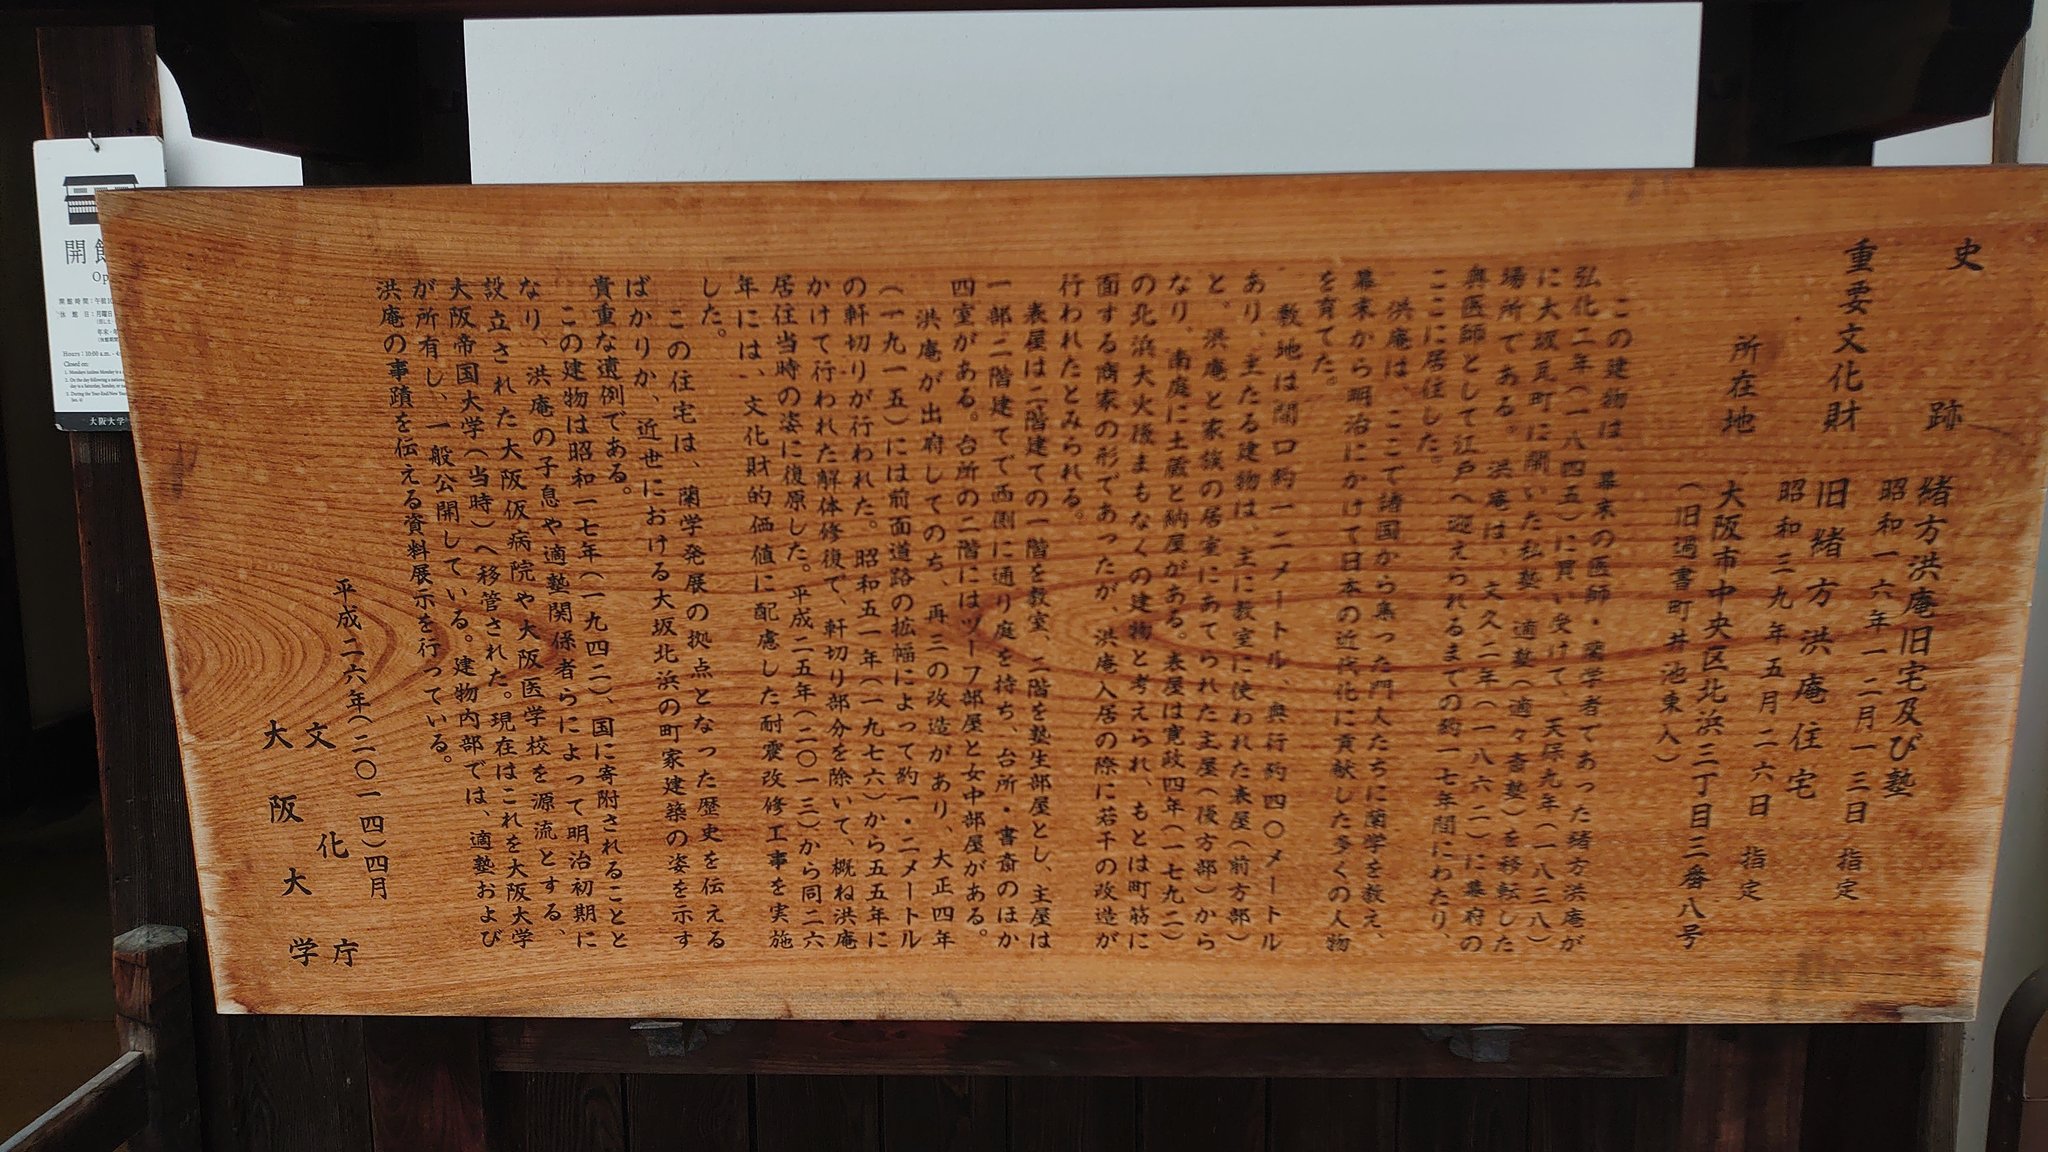 史跡 緒方洪庵旧宅及び塾
昭和一六年一二月一三日 指定
重要文化財 旧緒方洪庵住宅
昭和三九年五月二六日 指定
所在地 大阪市中央区北浜三丁目三番八号
（旧過書町井池東入）
この建物は、幕末の医師・蘭学者であった緒方洪庵が
弘化二年（一八四五）に買い受けて、天保九年（一八三八）
に大坂瓦町に開いた私塾、適塾（適々斎塾）を移転した
場所である。洪庵は、文久二年（一八六二）に幕府の
奥医師として江戸へ迎えられるまでの約一七年間にわたり、
ここに居住した。
洪庵は、ここで諸国から集った門人たちに蘭学を教え、
幕末から明治にかけて日本の近代化に貢献した多くの人物
を育てた。
敷地は間口約一二メートル、奥行約四〇メートル
あり、主たる建物は、主に教室に使われた表屋（前方部）
と、洪庵と家族の居室にあてられた主屋（後方部）から
なり、南庭に土蔵と納屋がある。表屋は寛政四年（一七九二）
の北浜大火後まもなくの建物と考えられ、もとは町筋に
面する商家の形であったが、洪庵入居の際に若干の改造が
行われたとみられる。
表屋は二階建ての一階を教室、二階を塾生部屋とし、主屋は
一部二階建てで西側に通り庭を持ち、台所・書斎のほか
四室がある。台所の二階にはヅーフ部屋と女中部屋がある。
洪庵が出府してのち、再三の改造があり、大正四年
（一九一五）には前面道路の拡幅によって約一・二メートル
の軒切りが行われた。昭和五一年（一九七六）から五五年に
かけて行われた解体修復で、軒切り部分を除いて、概ね洪庵
居住当時の姿に復原した。平成二五年（二〇一三）から同二六
年には、文化財的価値に配慮した耐震改修工事を実施
した。
この住宅は、蘭学発展の拠点となった歴史を伝える
ばかりか、近世における大坂北浜の町家建築の姿を示す
貴重な遺例である。
この建物は昭和一七年（一九四二）、国に寄附されることと
なり、洪庵の子息や適塾関係者らによって明治初期に
設立された大阪仮病院や大阪医学校を源流とする、
大阪帝国大学（当時）へ移管された。現在はこれを大阪大学
が所有し、一般公開している。建物内部では、適塾および
洪庵の事蹟を伝える資料展示を行っている。
平成二六年（二〇一四）四月
文化庁
大阪大学
開館
Op
開館時間：午前10
休館日：月曜日
Hours：10:00 a.m. - 4
Closed on:
大阪大学